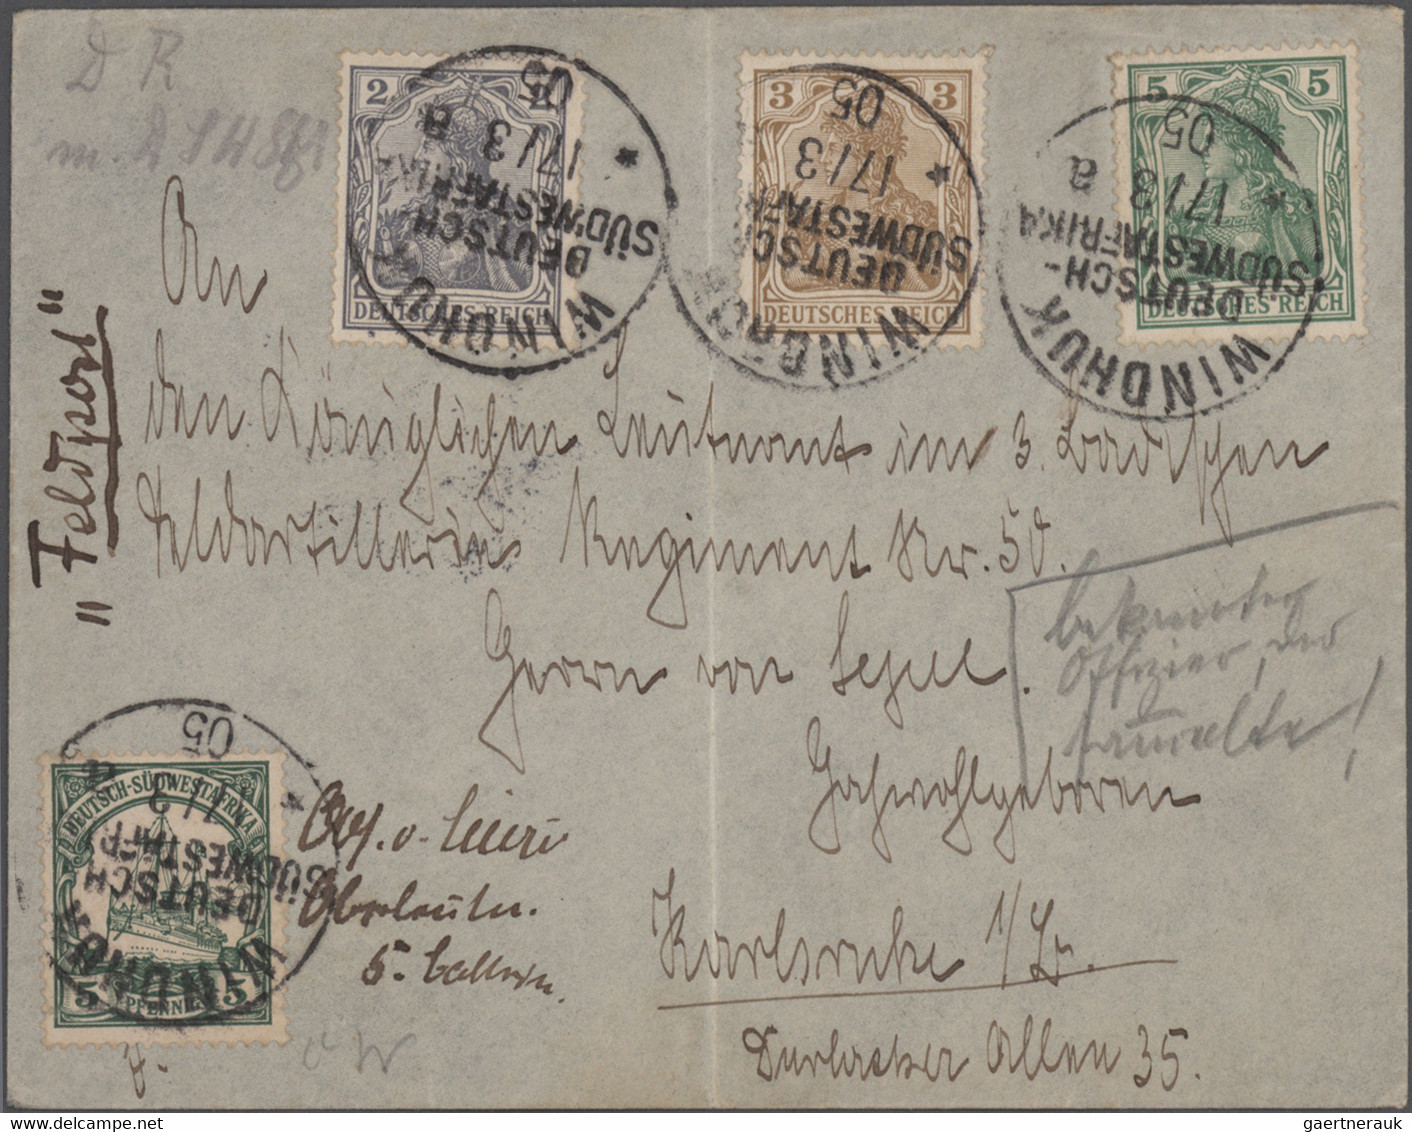 D R
2
DEUTSCHES REICH
WINDHUK
DEUTSCH-
SÜDWESTAFRIKA
17/3 a
05
3 3
DEUTSCHES REICH
WINDHUK
DEUTSCH-
SÜDWESTAFRIKA
17/3
05
5 5
DEUTSCHES REICH
WINDHUK
DEUTSCH-
SÜDWESTAFRIKA
17/3 a
05
"Feldpost"
An
den Königlichen Leutnant im 3. Badischen
Feldartillerie Regiment Nr. 50.
Herrn von
Hochwohlgeboren
Karlsruhe i/B.
Durlacher Allee 35.
bekannter
Offizier, der
sammelte!
DEUTSCH-SÜDWESTAFRIKA
5 5
PFENNIG
WINDHUK
DEUTSCH-
SÜDWESTAFRIKA
17/3 a
05
Oberleutn.
gaertnerauk